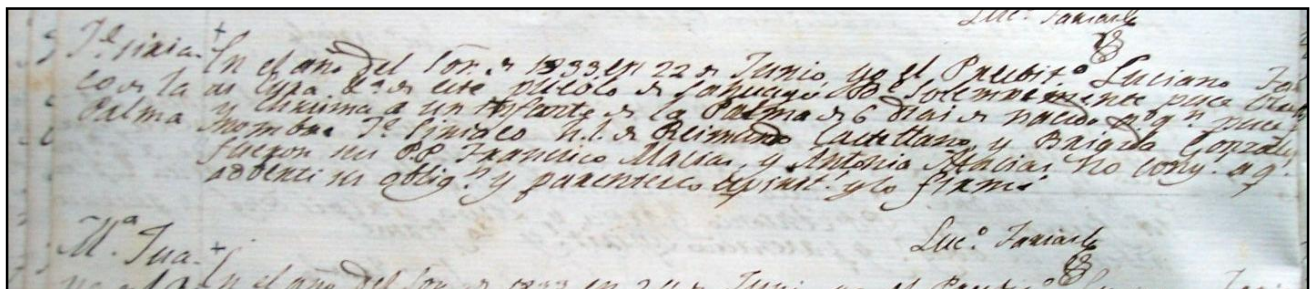 Luc.º Farias
Jᵉ Siria-
co de la
Palma
+
En el año del Sor. de 1833 en 22 de Junio, yo el Presbit.º Luciano
as Cura Eº. de este pueblo de Santiago solemnemente puse Oleo
y Chrisma a un Infante de la Palma de 6 dias de nacido a q.n puse
nombre Jᵉ Siriaco h.l. de Reimundo Castellano, y Brigda Gonzales
fueron sus P.P. Francisco Macias, y Antonia Macias no cony. a q.
adverti su oblig.n y parentesco espirit.l y lo firmé
Luc.º Farias
Mª. Jua-
+
En el año del Sor. de 1833 en